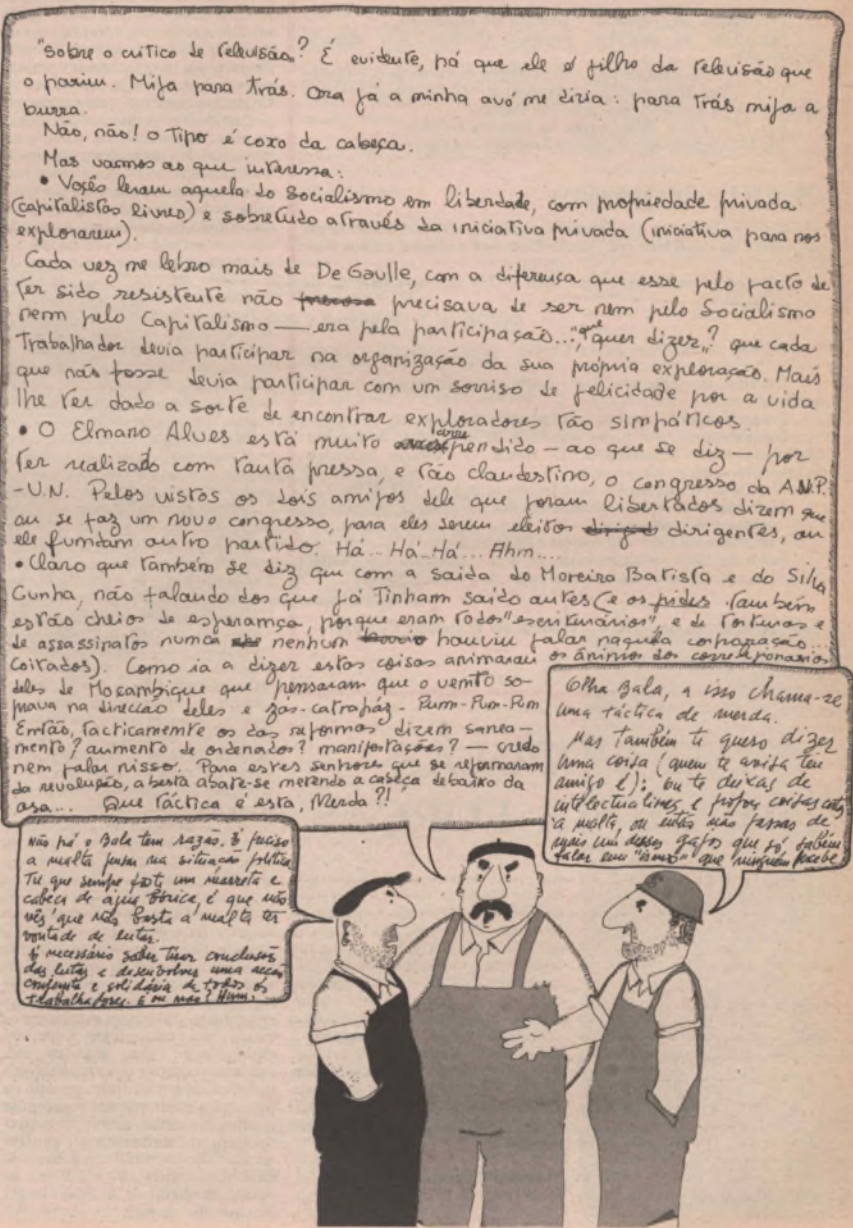 "Sobre o critico de televisão"? É evidente, pá que ele é filho da televisão que
o pariu. Mija para trás. Ora já a minha avó me dizia: para trás mija a
burra.
Não, não! o Tipo é coxo da cabeça.
Mas vamos ao que interessa:
• Vocês leram aquela do Socialismo em liberdade, com propriedade privada
(capitalistas livres) e sobretudo através da iniciativa privada (iniciativa para nos
explorarem).
Cada vez me lebro mais de De Gaulle, com a diferença que esse pelo facto de
ter sido resistente não precisava de ser nem pelo Socialismo
nem pelo Capitalismo — era pela participação... "que quer dizer"? que cada
Trabalhador devia participar na organização da sua própria exploração. Mais
que não fosse devia participar com um sorriso de felicidade por a vida
lhe ter dado a sorte de encontrar exploradores tão simpáticos.
• O Elmano Alves está muito arrependido — ao que se diz — por
ter realizado com tanta pressa, e tão clandestino, o congresso da A.N.P.
-U.N. Pelos vistos os dois amigos dele que foram libertados dizem que
ou se faz um novo congresso, para eles serem eleitos dirigentes, ou
ele fumdam outro partido. Há... Há... Há... Ahm....
• Claro que também se diz que com a saida do Moreira Batista e do Silva
Cunha, não falando dos que já Tinham saído antes (e os pides também
estão cheios de esperamça, porque eram todos "escriturários", e de torturas e
de assassinatos numca nenhum houviu falar naquela corporação...
coitados). Como ia a dizer estas coisas animaram os ânimos dos correligionarios
deles de Moçambique que pensaram que o vemto so-
prava na direcção deles e zás-catrapaz - Pum-Pum-Pum
Emtão, tacticamente os das reformas dizem sanea-
mento? aumento de ordenados? manifestações? — credo
nem falar nisso. Para estes senhores que se reformaram
da revolução, a besta abate-se metendo a cabeça debaixo da
asa... Que táctica é esta, Merda?!
Olha Bala, a isso chama-se
uma táctica de merda.
Mas também te quero dizer
uma coisa (quem te avisa teu
amigo é): ou te deixas de
intelectualines, e propões coisas
à malta, ou então não passas de
mais um desses gajos que só sabem
falar em "ismos" que ninguém percebe
Não pá o Bala tem razão. É preciso
a malta pensar na situação política
Tu que sempre foste um marreta e
cabeça de água bórica, é que não
vês que não basta a malta ter
vontade de lutar.
É necessário saber tirar conclusões
das lutas e desenvolver uma acção
conjunta e solidária de todos os
trabalhadores. É ou não? Hum.